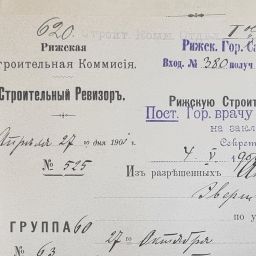 620.
Строит. Комм. Отдѣл
Рижская
троительная Коммисія.
Строительный Ревизоръ.
Апрѣля 27 го дня 1901 г.
№ 525
ГРУППА 60
№ 63
Рижск. Гор. Са
Вход. № 380 получ
Рижскую Строит
Пост. Гор. врачу
на закл
Секрет
4 V 190
Изъ разрѣшенныхъ
по у
27 го Октября